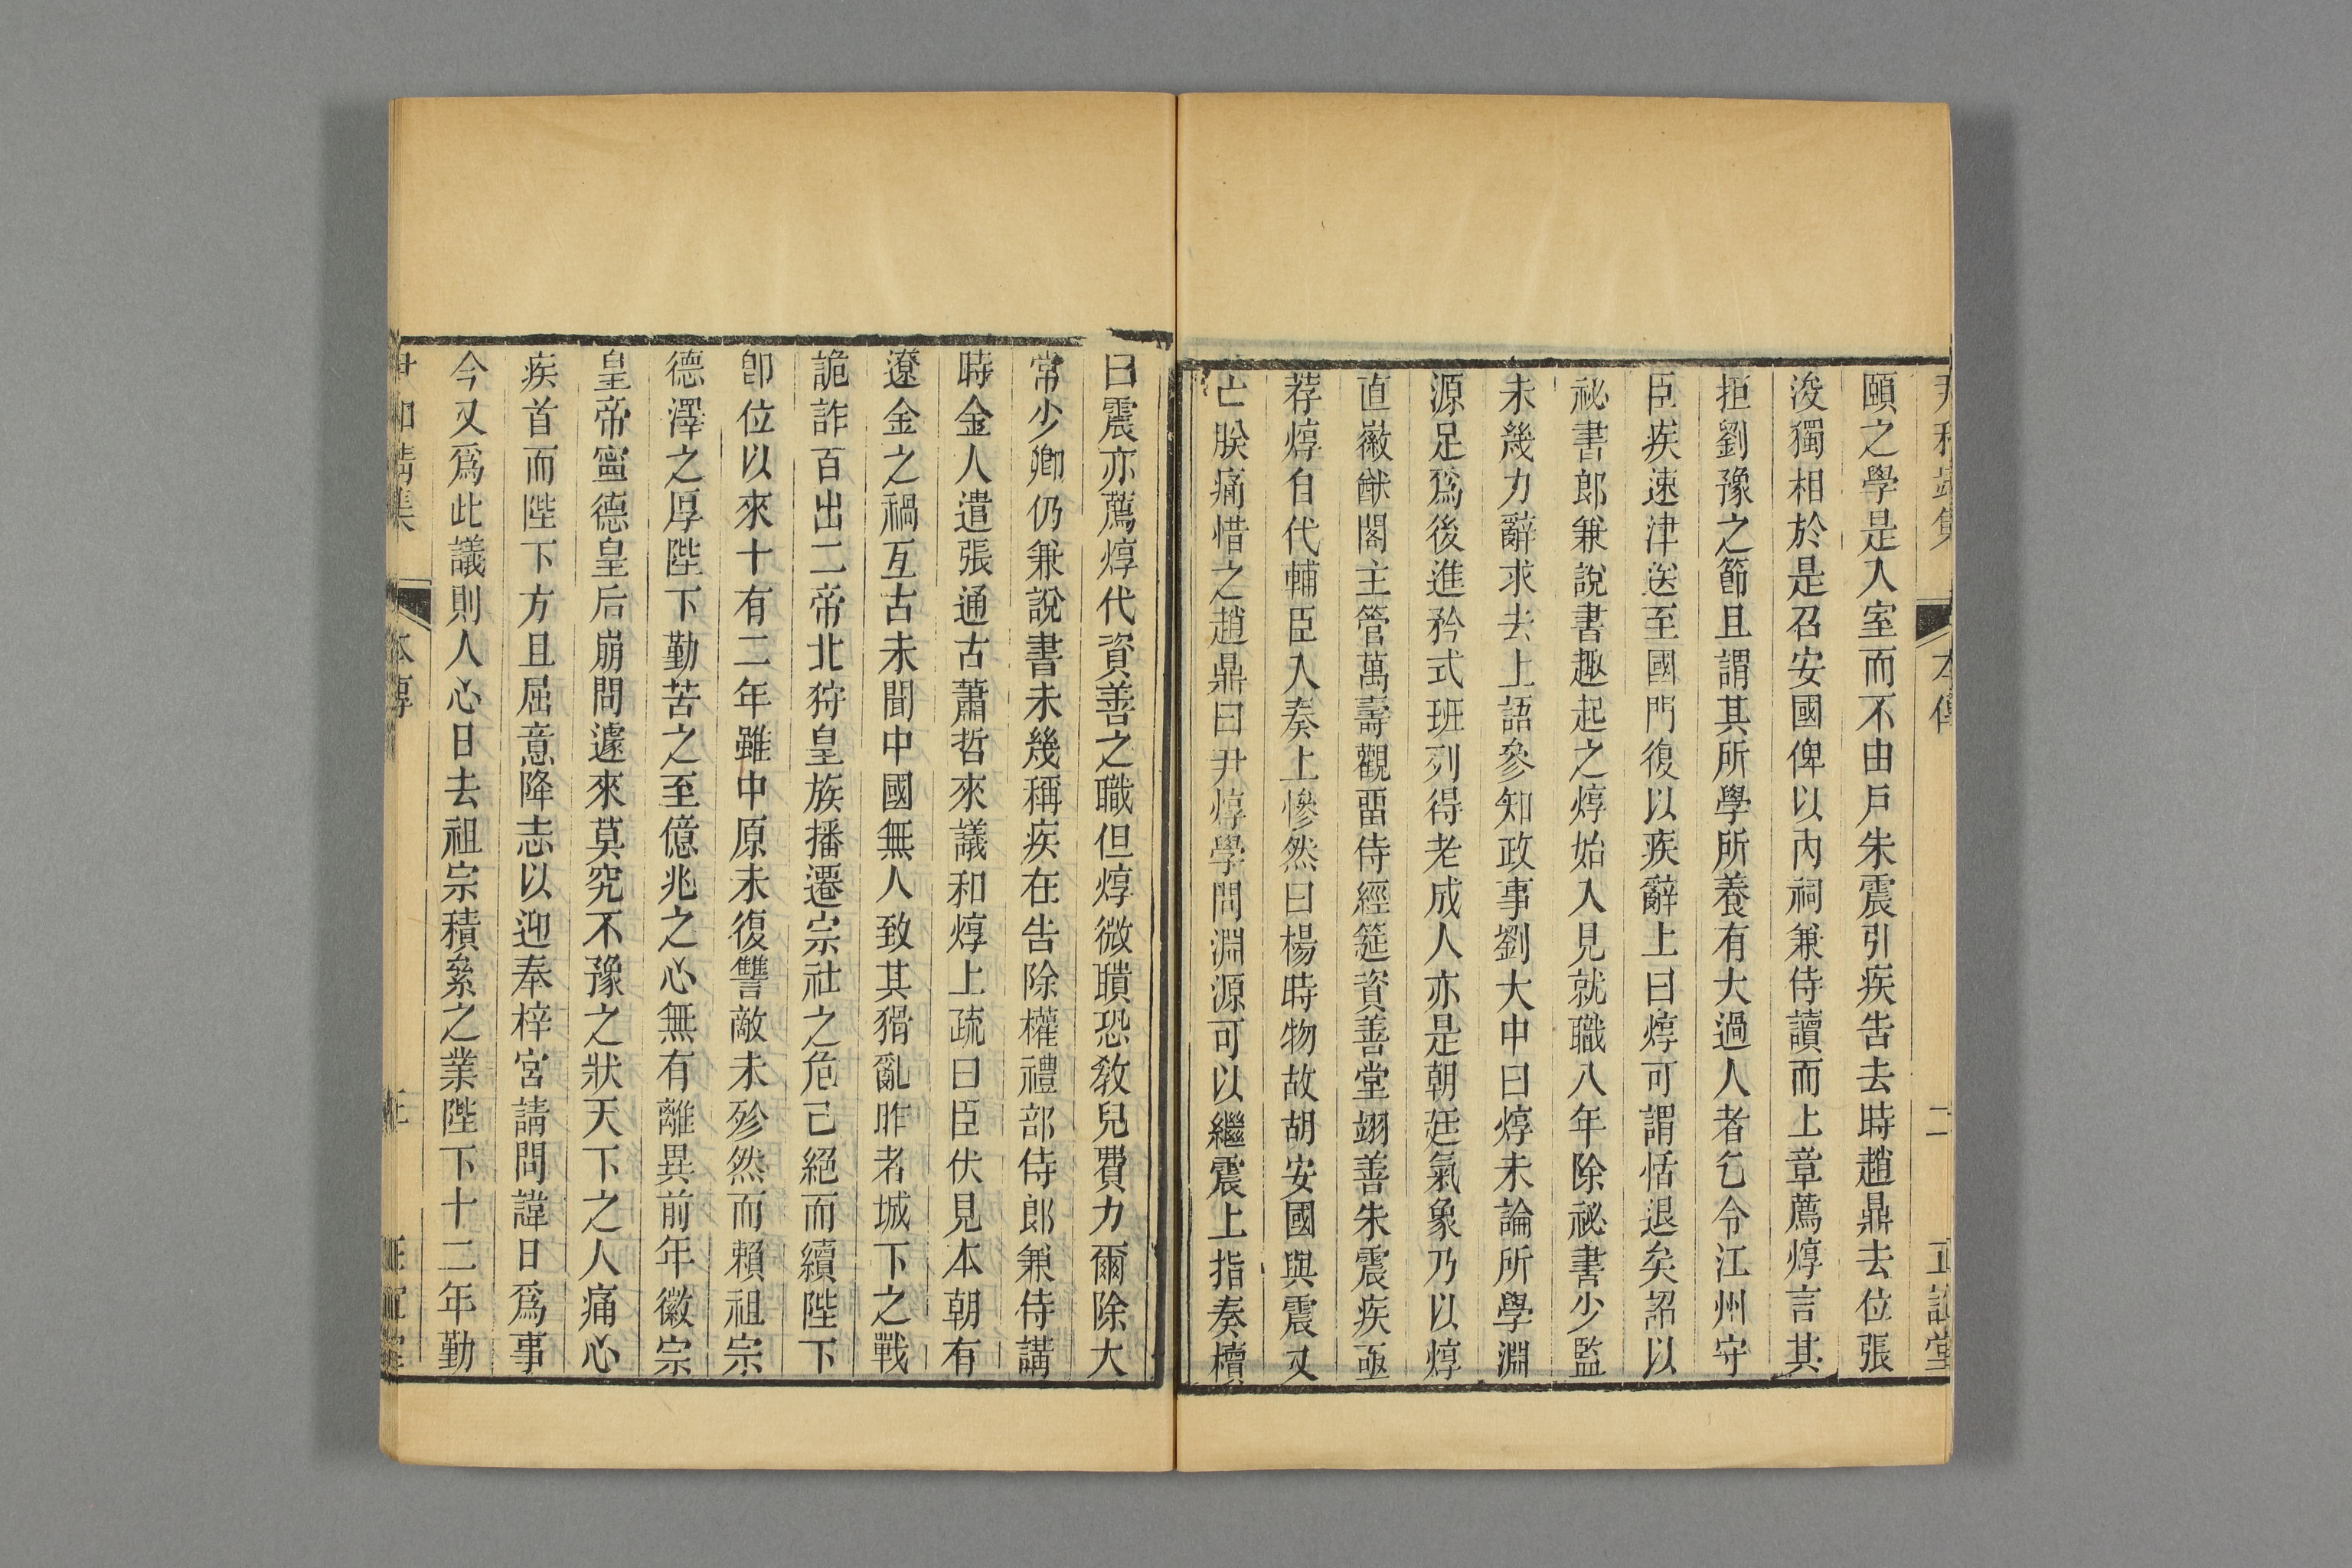 頤之學是入室而不由戶朱震引疾告去時趙鼎去位張
浚獨相於是召安國俾以內祠兼侍讀而上章薦焞言其
拒劉豫之節且謂其所學所養有大過人者乞令江州守
臣疾速津送至國門復以疾辭上曰焞可謂恬退矣詔以
祕書郎兼說書趣起之焞始入見就職八年除祕書少監
未幾力辭求去上語參知政事劉大中曰焞未論所學淵
源足爲後進矜式班列得老成人亦是朝廷氣象乃以焞
直徽猷閣主管萬壽觀畱侍經筵資善堂翊善朱震疾亟
荐焞自代輔臣入奏上慘然曰楊時物故胡安國與震又
亡朕痛惜之趙鼎曰尹焞學問淵源可以繼震上指奏櫝
曰震亦薦焞代資善之職但焞微瞶恐敎兒費力爾除大
常少卿仍兼說書未幾稱疾在告除權禮部侍郎兼侍講
時金人遣張通古蕭哲來議和焞上疏曰臣伏見本朝有
遼金之禍亙古未聞中國無人致其猾亂昨者城下之戰
詭詐百出二帝北狩皇族播遷宗社之危已絕而續陛下
卽位以來十有二年雖中原未復讐敵未殄然而賴祖宗
德澤之厚陛下勤苦之至億兆之心無有離異前年徽宗
皇帝寧德皇后崩問遽來莫究不豫之狀天下之人痛心
疾首而陛下方且屈意降志以迎奉梓宮請問諱日爲事
今又爲此議則人心日去祖宗積絫之業陛下十二年勤
尹和靖集 本傳